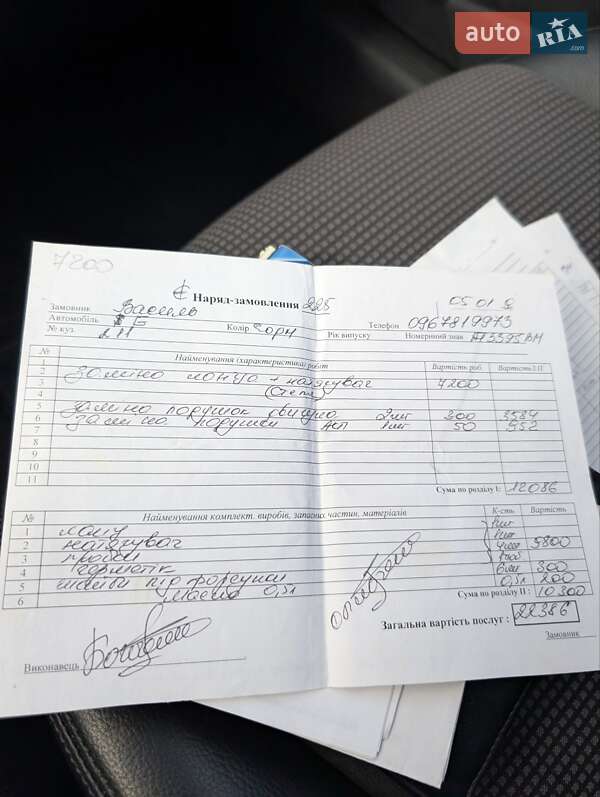 auto RIA .com
7200
Наряд-замовлення 225
05 01
Замовник Василь
Автомобіль Е Колір чорн Рік випуску Телефон 0967819973
№ куз. 211 Номерний знак АТ3393ВМ
№ Найменування (характеристика) робіт Вартість роб. Вартість З.Ч
1
2
3 Заміна ланцюга + натягувач 7200
4
5
6 Заміна подушок двигуна 2шт 300 3584
7 Заміна подушки 1шт 50 952
8
9
10
11
Сума по розділу I: 12086
№ Найменування комплект. виробів, запасних частин, матеріалів К-сть Вартість
1 ланц 1шт
2 натягувач 1шт 5800
3
4 герметик
5 шайби під форсунки 300
6 масло 0,5л 0,5л 200
Сума по розділу II : 10300
Загальна вартість послуг : 22386
Виконавець
Замовник